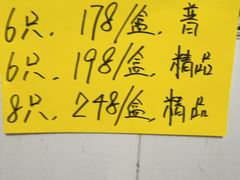 6只. 178/盒. 普
6只. 198/盒. 精品
8只. 248/盒. 精品